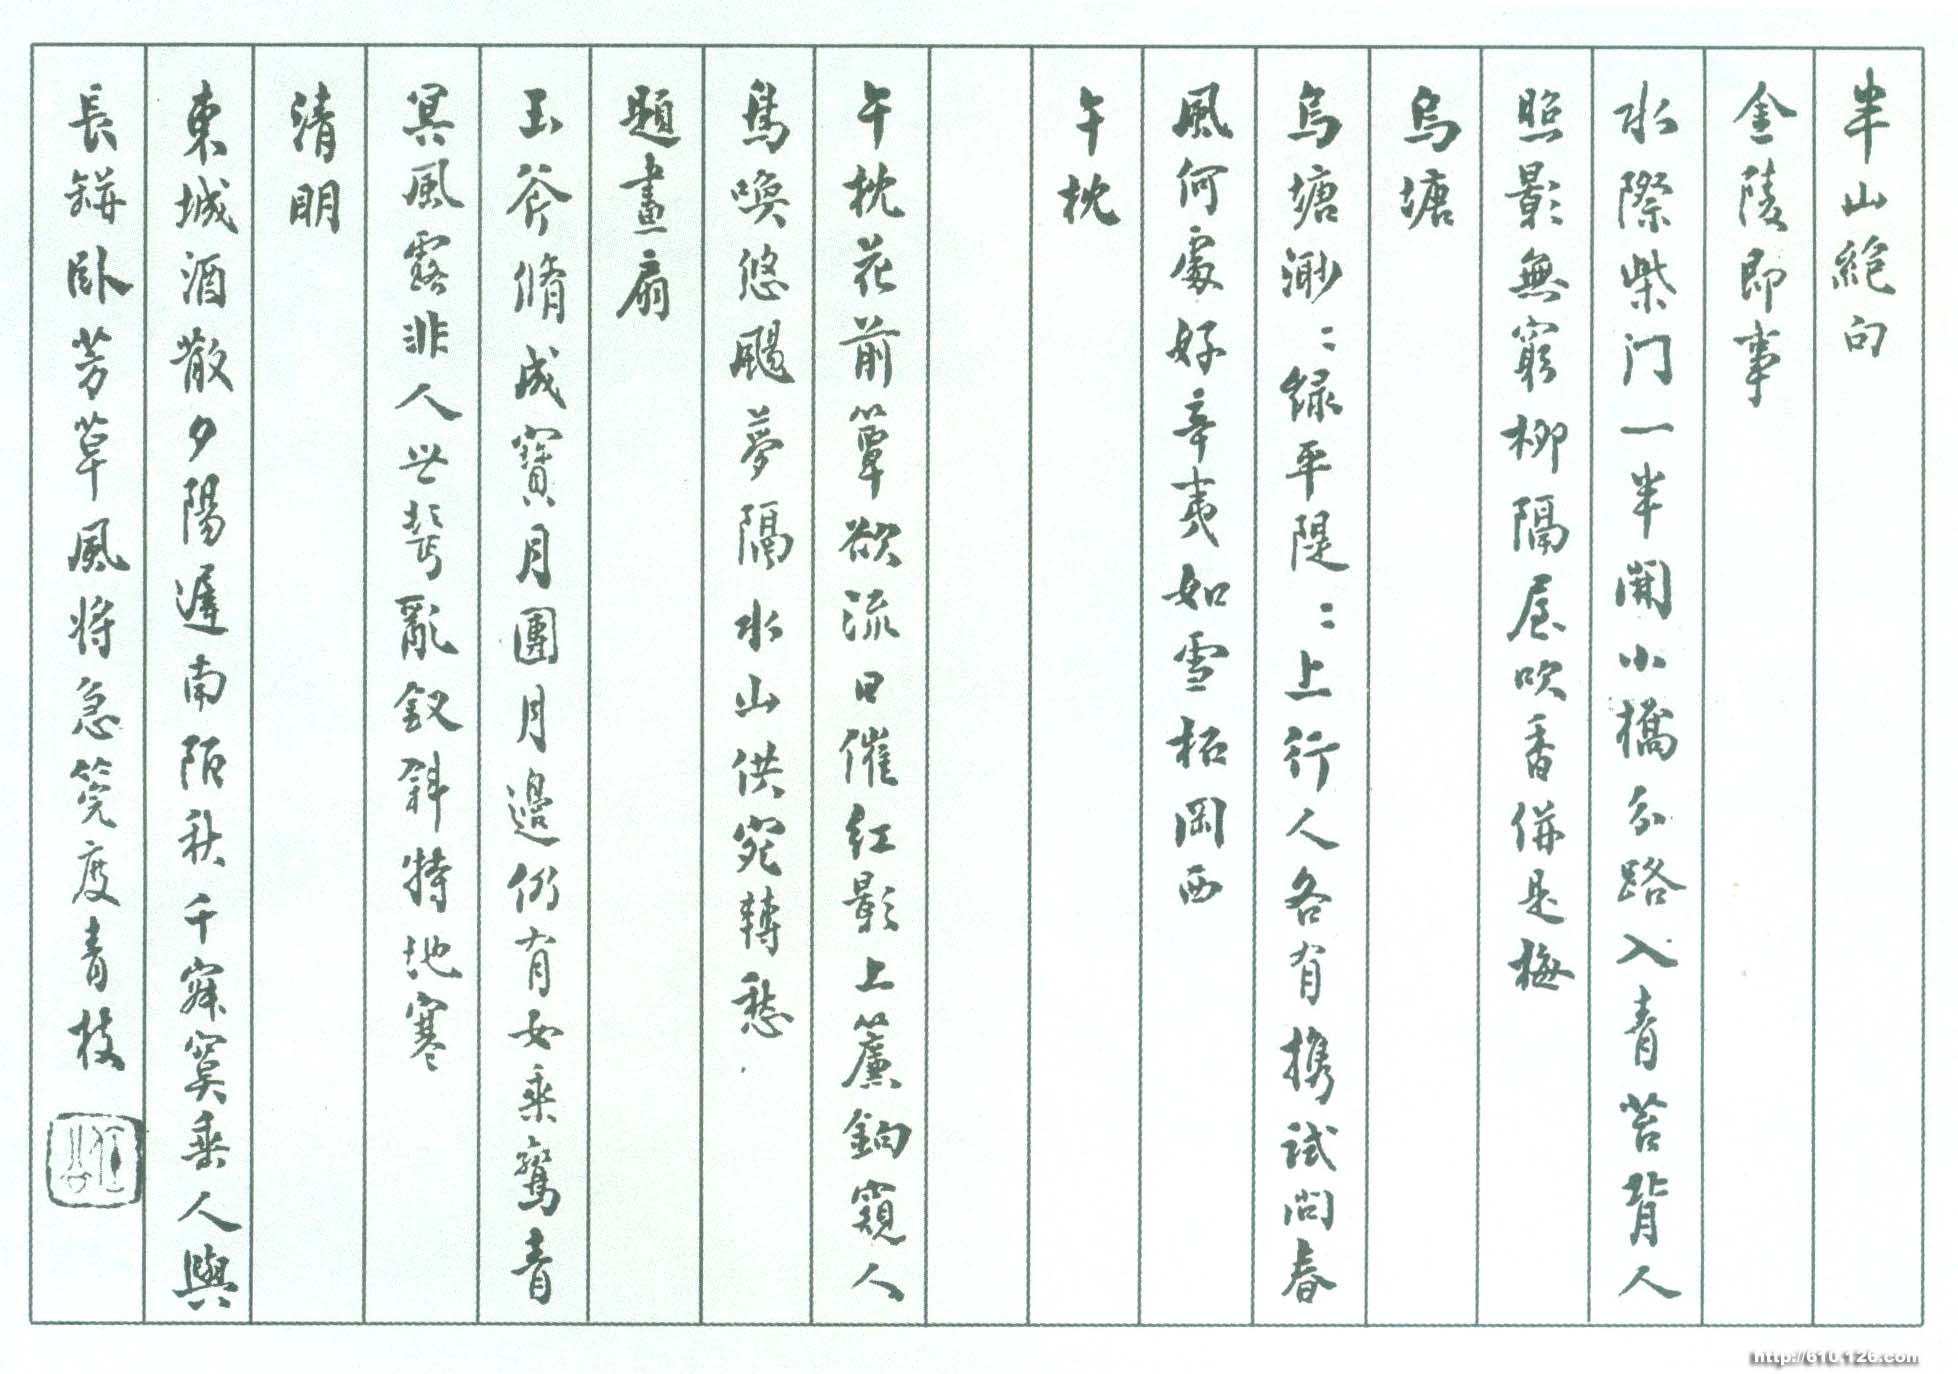 半山絶句
金陵即事
水際柴门一半開小橋分路入青苔背人
照影無窮柳隔屋吹香併是梅
烏塘
烏塘渺〻緑平隄〻上行人各有携試問春
風何處好辛夷如雪柘岡西
午枕
午枕花前簟欲流日催紅影上簾鉤窺人
鳥喚悠颺夢隔水山供宛轉愁
題畫扇
玉斧脩成寶月團月邊仍有女乘鸞青
冥風露非人世鬢亂釵斜特地寒
清明
東城酒散夕陽遲南陌秋千寂寞垂人與
長缾臥芳草風将急筦度青枝
http://610.126.com